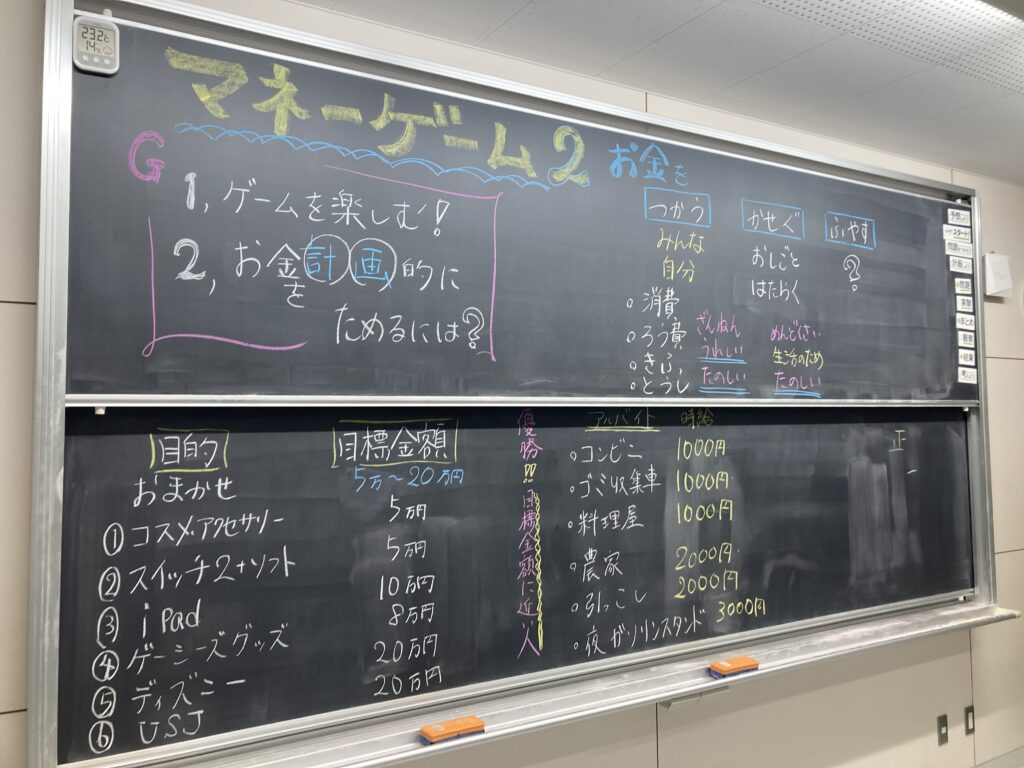 23.2℃
14%
マネーゲーム2
G
1, ゲームを楽しむ!
2, お金を計画的に
ためるには?
お金を
つかう
みんな
自分
○消費
○ろう費
○きふ
○とうし
かせぐ
おしごと
はたらく
ふやす
?
ざんねん
うれしい
たのしい
めんどくさい
生活のため
たのしい
目的
目標金額
おまかせ
5万~20万円
①コスメ・アクセサリー
5万円
②スイッチ2+ソフト
5万円
③iPad
10万円
④ゲーシーズグッズ
8万円
⑤ディズニー
20万円
⑥USJ
20万円
優勝!!目標金額に近い人
アルバイト
時給
○コンビニ
1000円
○ゴミ収集車
1000円
○料理屋
1000円
○農家
2000円
○引っこし
2000円
○夜ガソリンスタンド
3000円
正
一